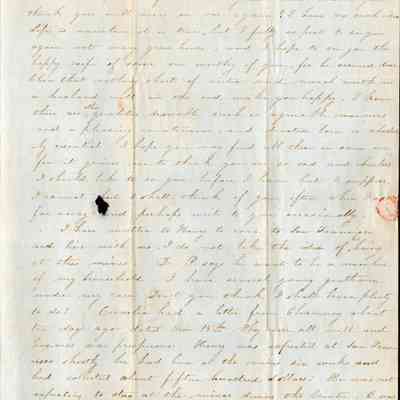 think you will ever see me again? I have no such idea
life is uncertain it is true, but I fully expect to see you
again not many years hence, and I hope to see you the
happy wife of some one worthy of you, for he seemed
than that nothing short of virtue and much worth in
a husband, will in the end, make you happy. I know
there are the qualities desirable such as agreeable manners
and a pleasing exterior and of course love is absolu-
tely essential. I hope you may find all these in some one
for it grieves me to think you are so sad and
I should like to see you before I leave but I suppose
I cannot and I shall think of you often when I am
far away and perhaps write to you occasionally.
I have written to Henry to come to San Francisco
and live with me. I do not like the idea of his being
at those mines. Dr P says he must to be a member
of my household. I have several young gentlemen
under my care. Don't you think I shall have plenty
to do? Cornelia had a letter from Chauncey about
ten days ago dated Nov 15th. They were all well and
business was prosperous. Henry was expected at San Fran
cisco shortly he had been at the mines six weeks and
had collected about fifteen hundred dollars. He was not
expecting to stay at the mines during the winter. C was